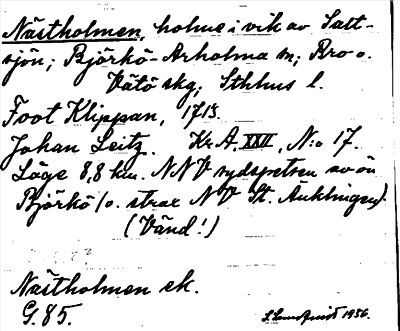 Nästholmen, holme i vik av Salt-
sjön; Björkö-Arholma sn; Bro o.
Vätö skg; Sthlms l.
Foot Klippan, 1713.
Johan Leitz. Kr.A. XXII, N:o 17.
Läge 8,8 km. NNV sydspetsen av ön
Björkö (o. strax NV St. Ankhingen).
(Vänd!)
Nästholmen ek.
G. 85.
S. Landqvist 1936.